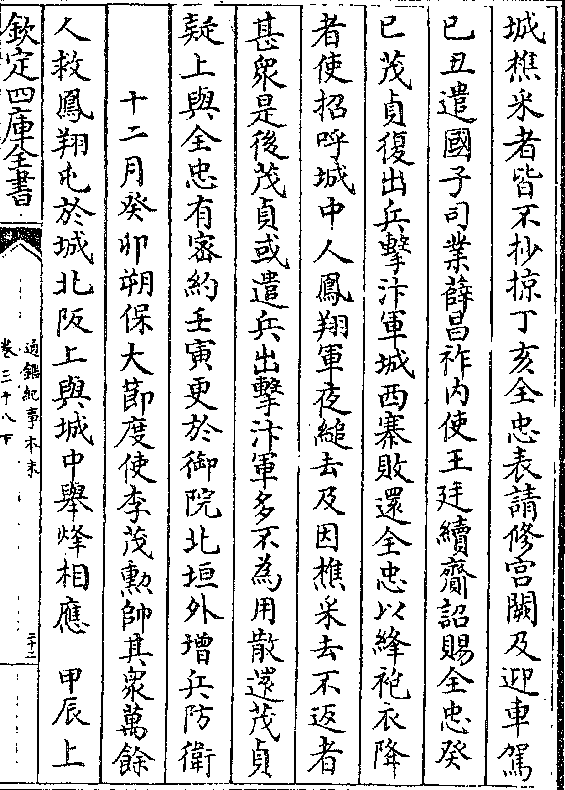 城樵采者皆不抄掠丁亥全忠表請修宫闕及迎車駕
己丑遣國子司業薛昌祚内使王廷繢齎詔賜全忠癸
巳茂貞復出兵擊汴軍城西寨敗還全忠以絳袍衣降
者使招呼城中人鳳翔軍夜縋去及因樵采去不返者
甚衆是後茂貞或遣兵出擊汴軍多不為用散還茂貞
疑上與全忠有密約壬寅更於御院北垣外增兵防衛
十二月癸卯朔保大節度使李茂勲帥其衆萬餘
人救鳳翔屯於城北阪上與城中舉烽相應　甲辰上
欽定四庫全書
通鑑紀事本末
卷三十八下
二十三